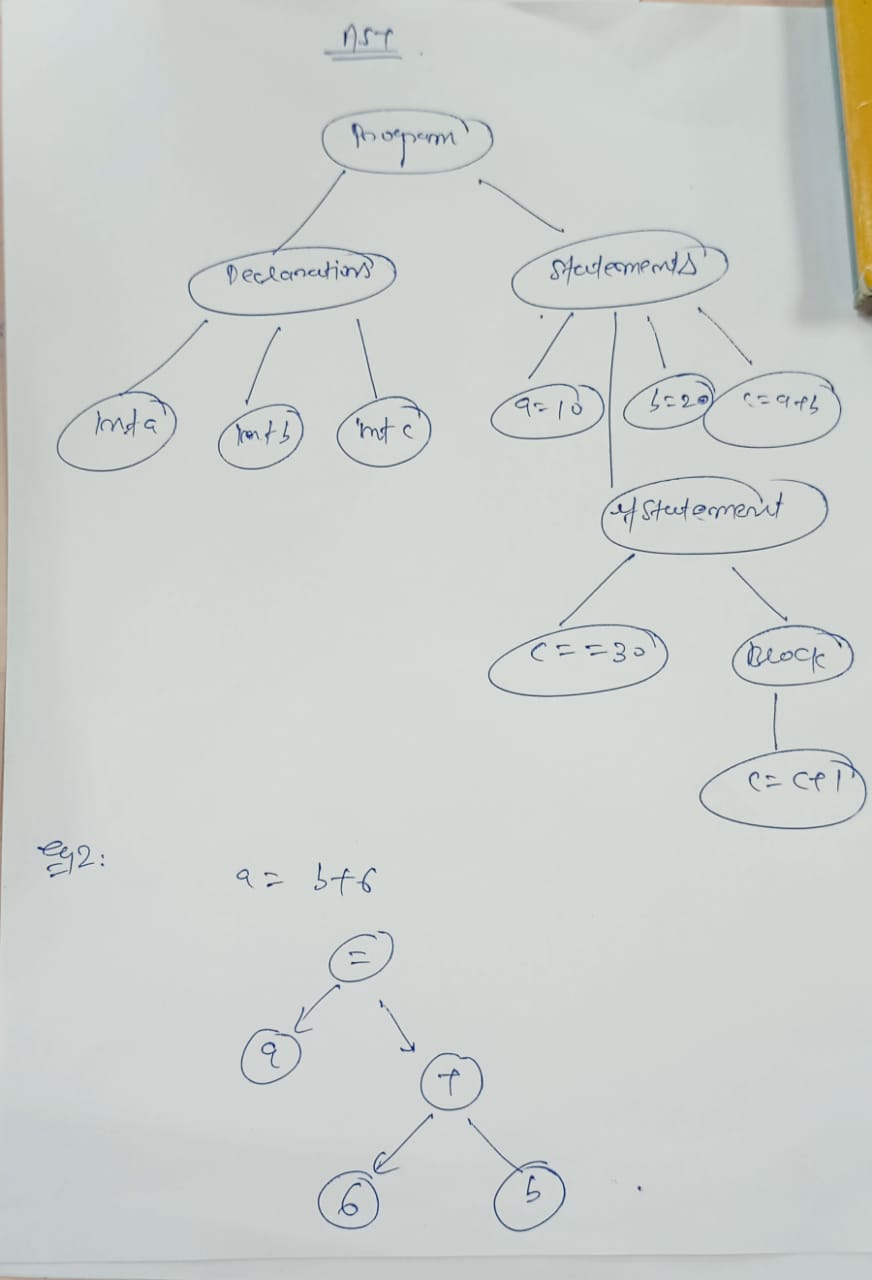 AST
Program
Declarations
Statements
int a
int b
int c
a=10
b=20
c=a+b
if statement
c==30
Block
c=c+1
Eg2:
a= b+6
=
a
+
6
b